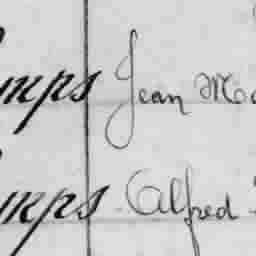 mps Jean Ma
mps Alfred